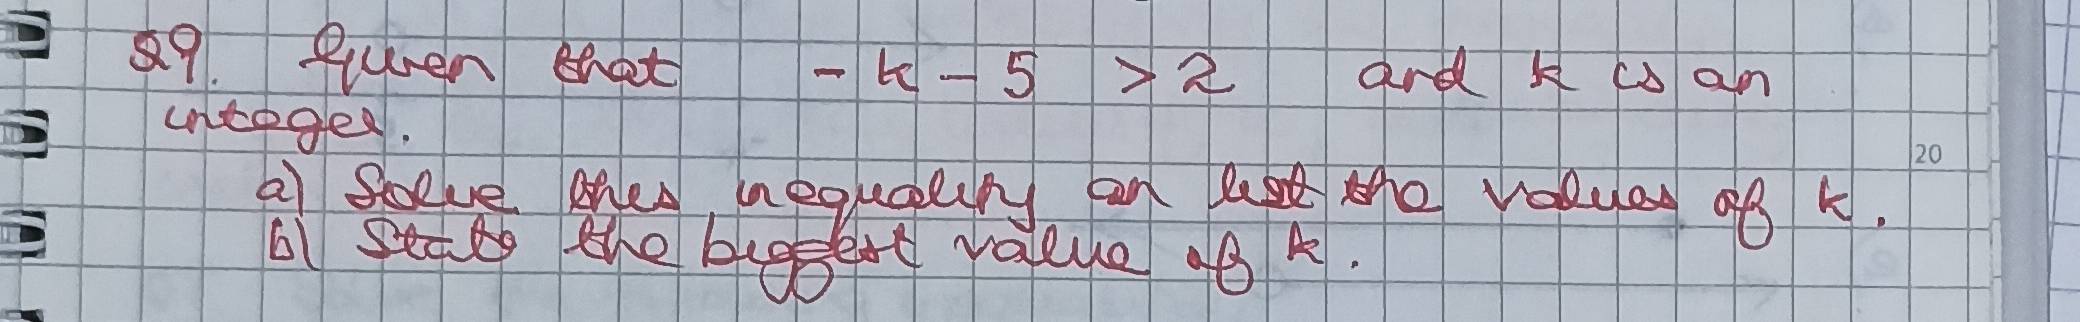 Q9. Given that -k-5 >2 and k is an
integer.
20
a) Solve this inequality an list the values of k.
b) State the biggest value of k.